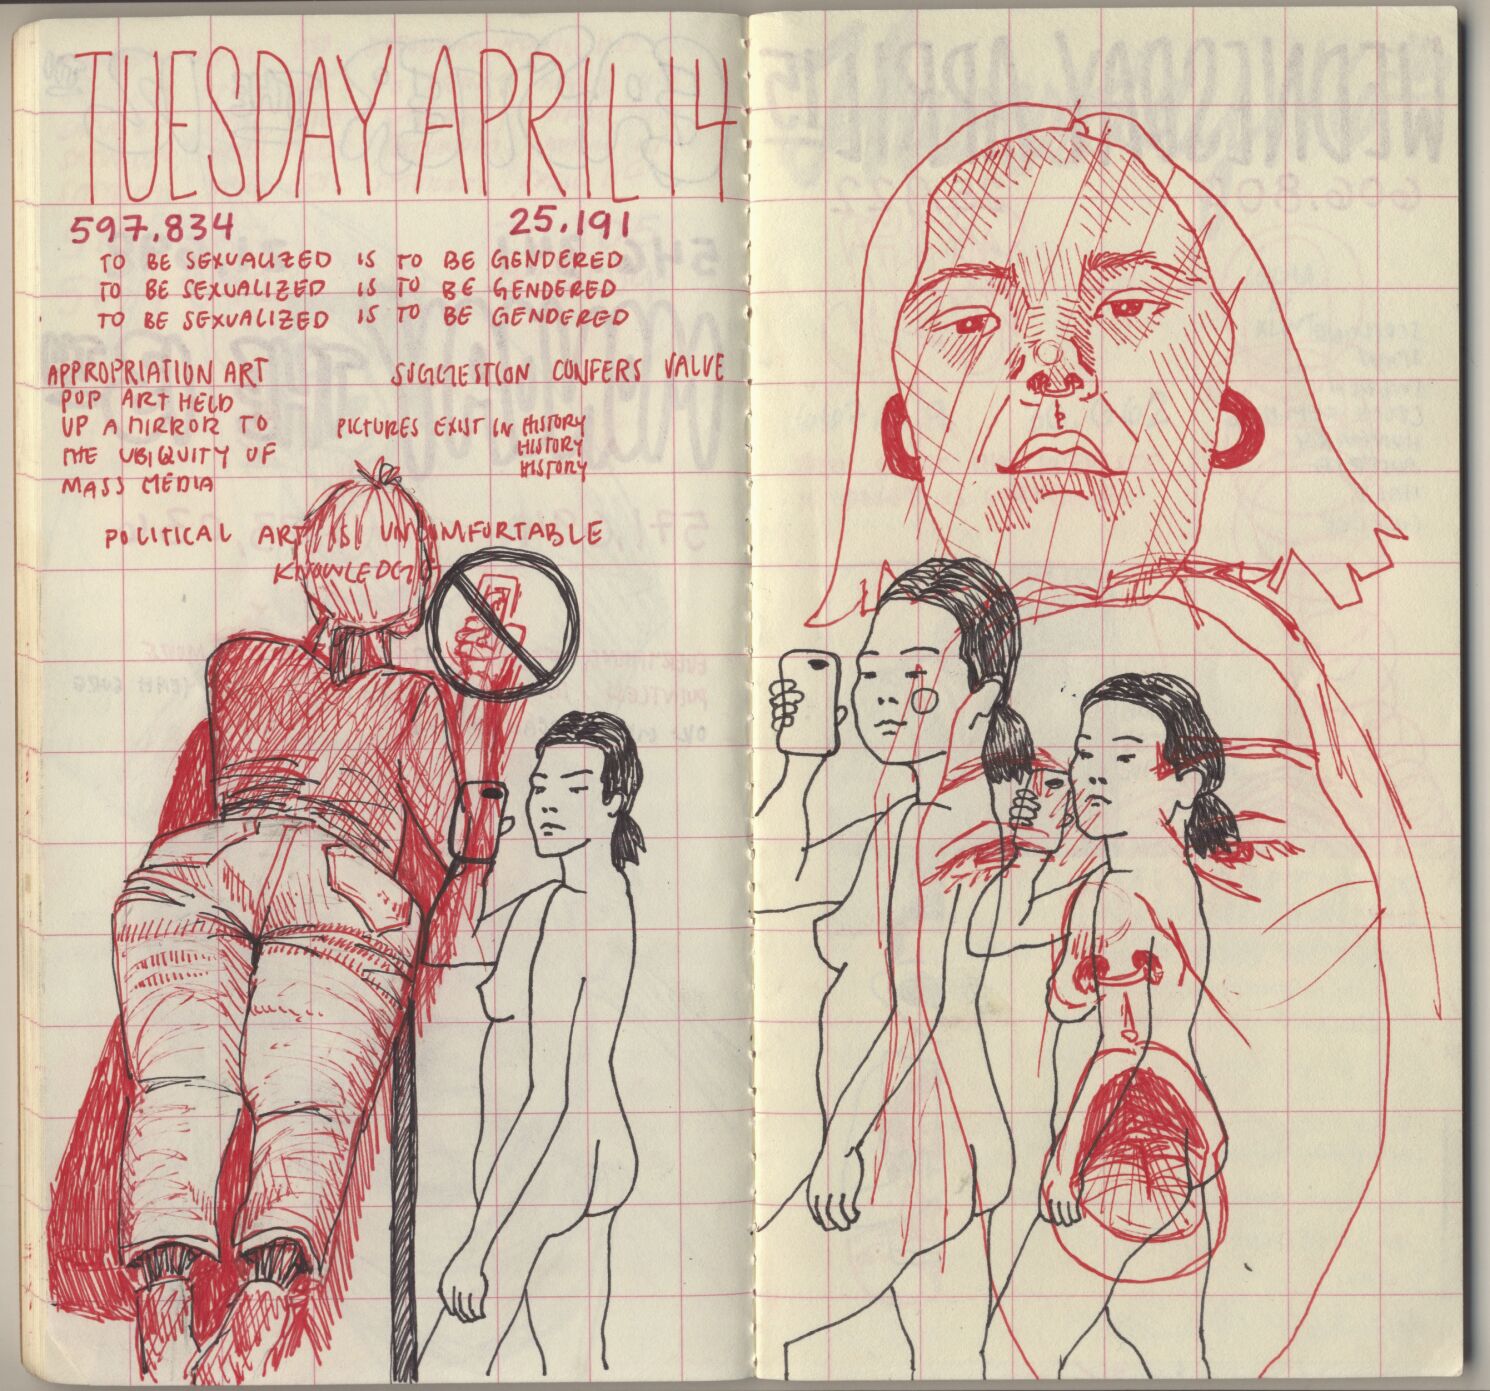 TUESDAY APRIL 14
597.834 25.191
TO BE SEXUALIZED IS TO BE GENDERED
TO BE SEXUALIZED IS TO BE GENDERED
TO BE SEXUALIZED IS TO BE GENDERED
APPROPRIATION ART
POP ART HELD
UP A MIRROR TO
THE UBIQUITY OF
MASS MEDIA
SUGGESTION CONFERS VALUE
PICTURES EXIST IN HISTORY
HISTORY
HISTORY
POLITICAL ART IS UNCOMFORTABLE
KNOWLEDGE